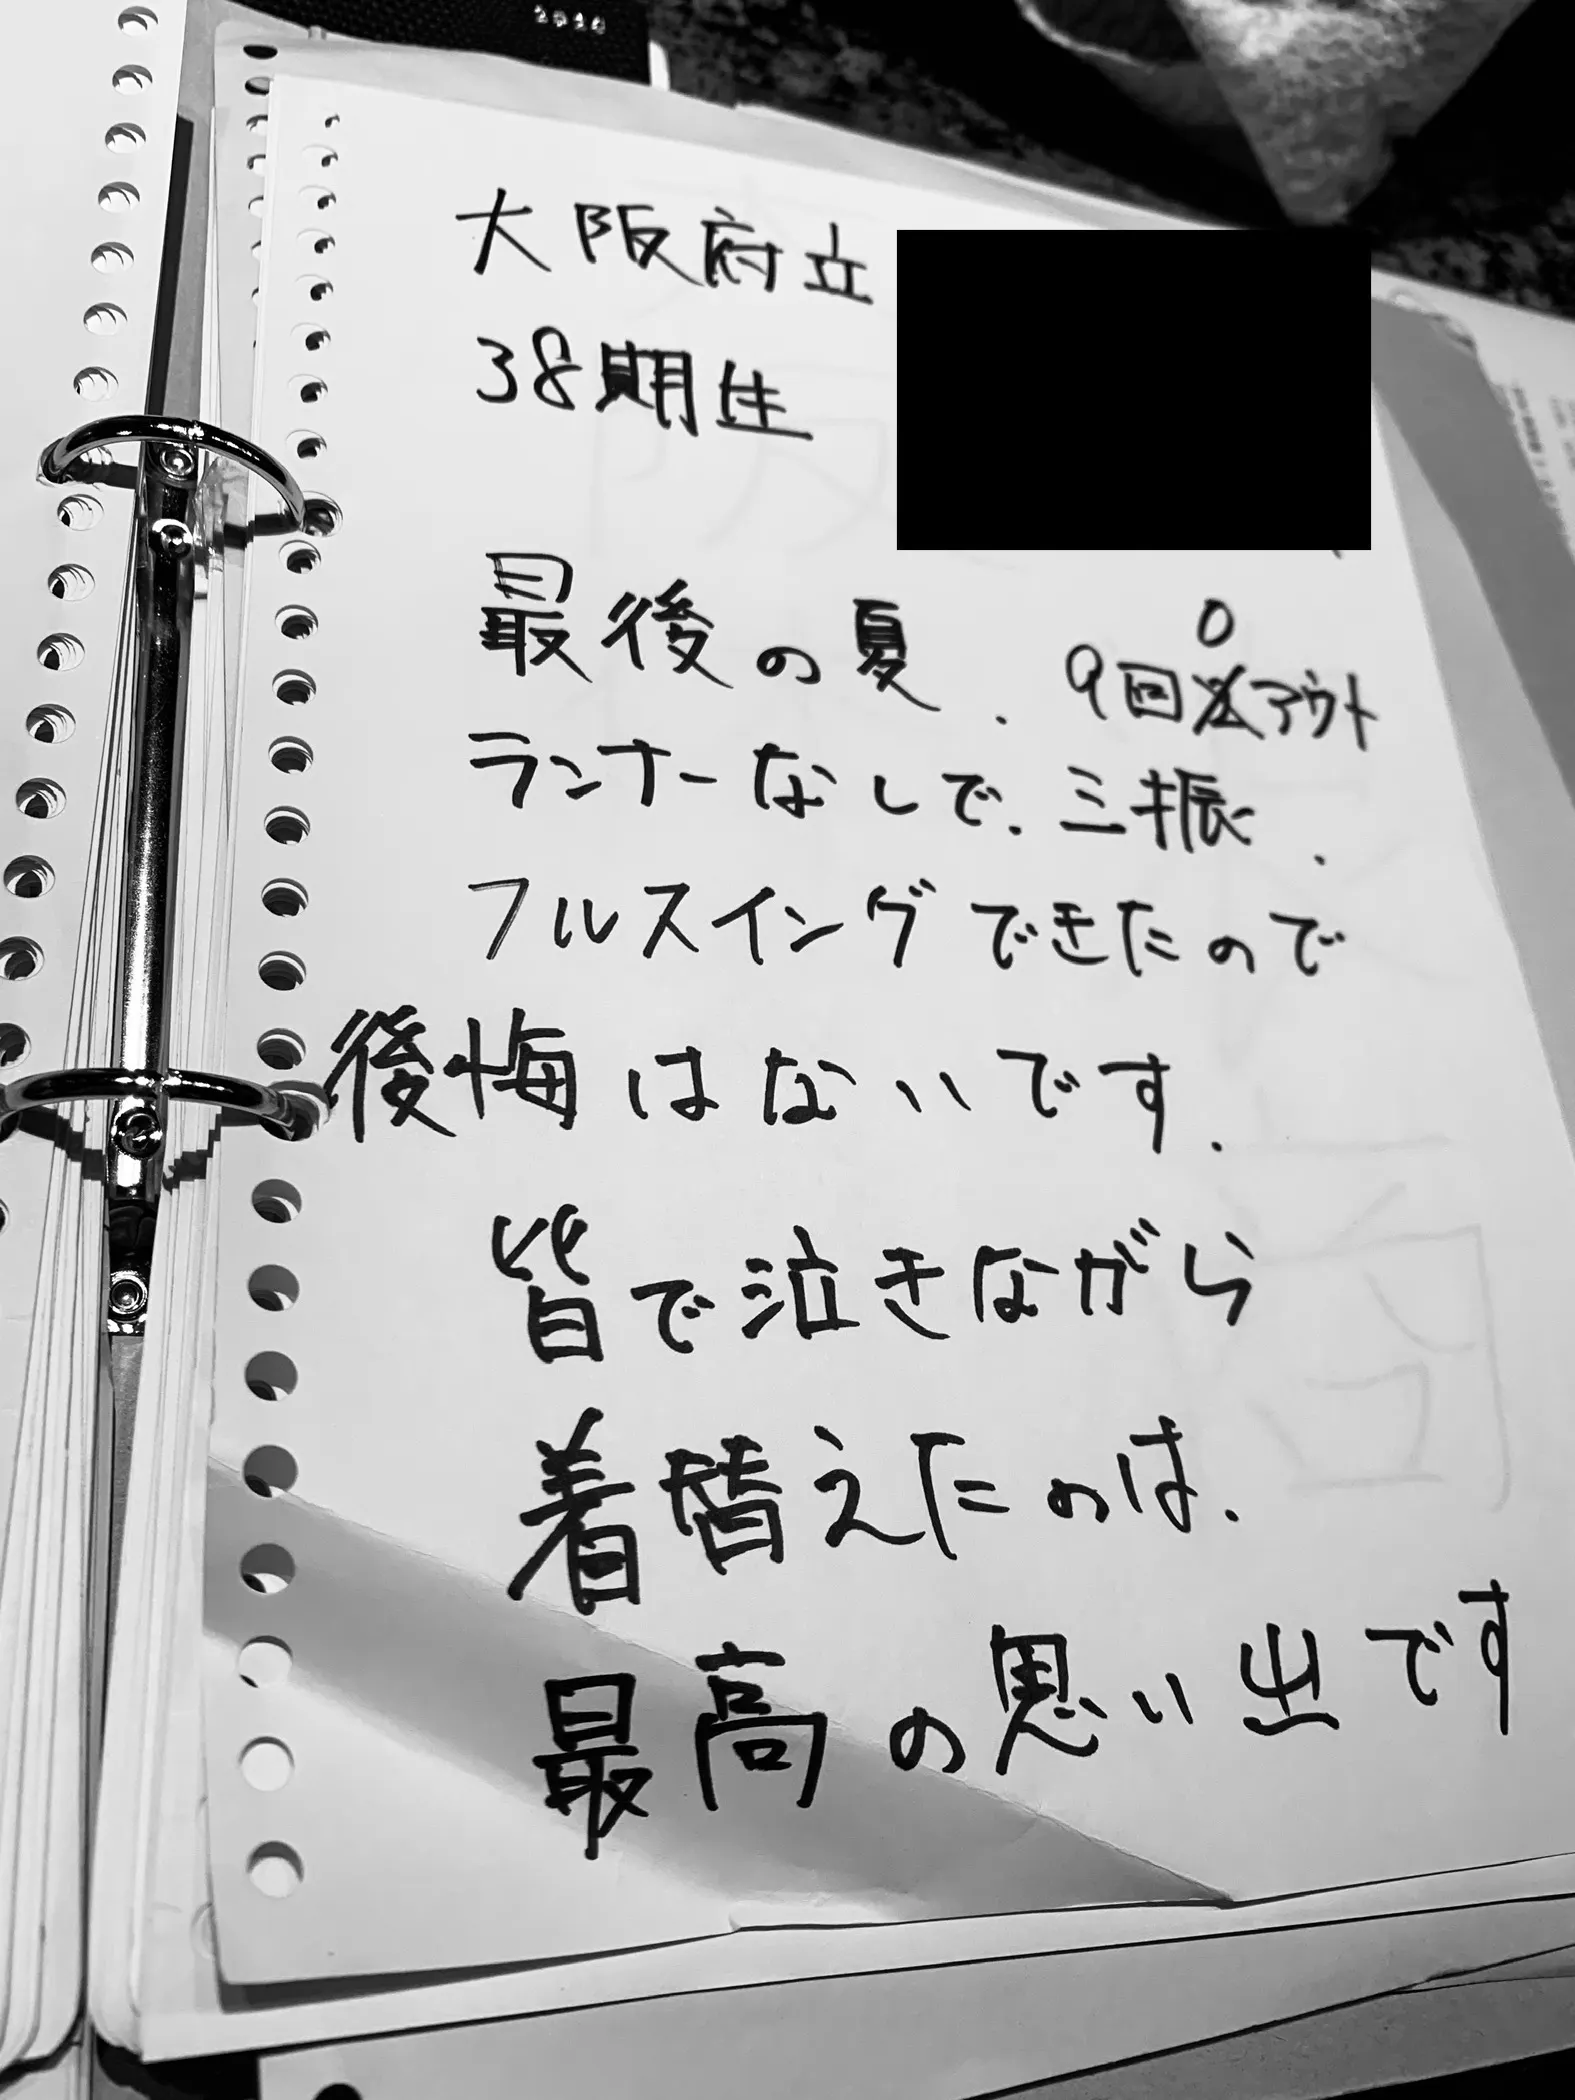 2020
大阪府立
38期生
最後の夏、9回0アウト
ランナーなしで、三振、
フルスイングできたので
後悔はないです、
皆で泣きながら
着替えたのは、
最高の思い出です